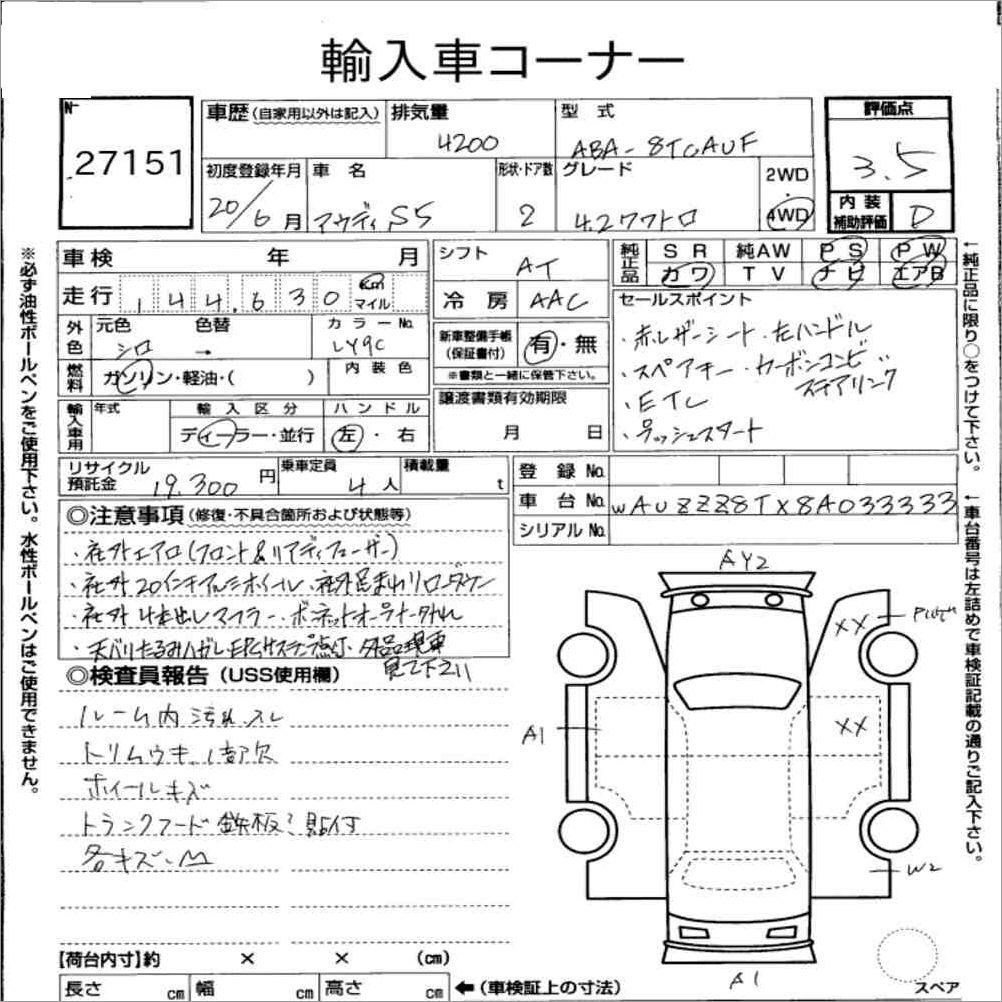 輸入車コーナー
No
27151
車歴(自家用以外は記入)
排気量
4200
型式
ABA-8TCAUF
評価点
3.5
初度登録年月
20/6月
車名
アウディ S5
形状・ドア数
2
グレード
4.2クワトロ
2WD
・
4WD
内装
補助評価
D
車検 年 月
走行 144,630 Km
マイル
シフト
AT
冷房
AAC
純正品
SR 純AW PS PW
カワ TV ナビ エアB
外色
元色
シロ
色替
→
カラーNo.
LY9C
燃料
ガソリン・軽油・( )
内装色
新車整備手帳
(保証書付)
有・無
※書類と一緒に保管下さい。
セールスポイント
・赤レザーシート・左ハンドル
・スペアキー・カーボンコンビ
ステアリング
・ETC
・プッシュスタート
輸入車用
年式
輸入区分
ディーラー・並行
ハンドル
左・右
譲渡書類有効期限
月 日
リサイクル
預託金
19,300円
乗車定員
4人
積載量
t
登録No.
車台No.
WAUZZZ8TX8A033333
シリアルNo.
◎注意事項(修復・不具合箇所および状態等)
・社外エアロ(フロント&リアディフューザー)
・社外20インチアルミホイール・社外足まわりローダウン
・社外4本出しマフラー・ボンネットオーナメント外れ
・天バリたるみハガレ 点灯・欠品現車
見て下さい
◎検査員報告(USS使用欄)
ルーム内汚れスレ
トリムウキ、1部欠
ホイールキズ
トランクフード鉄板ミ貼付
各キズ・M
AY2
XX
XX
A1
W2
A1
スペア
【荷台内寸】約 × × (cm)
長さ cm 幅 cm 高さ cm ←(車検証上の寸法)
※必ず油性ボールペンをご使用下さい。水性ボールペンはご使用できません。
↑純正品に限り○をつけて下さい。
↑車台番号は左詰めで車検証記載の通りご記入下さい。